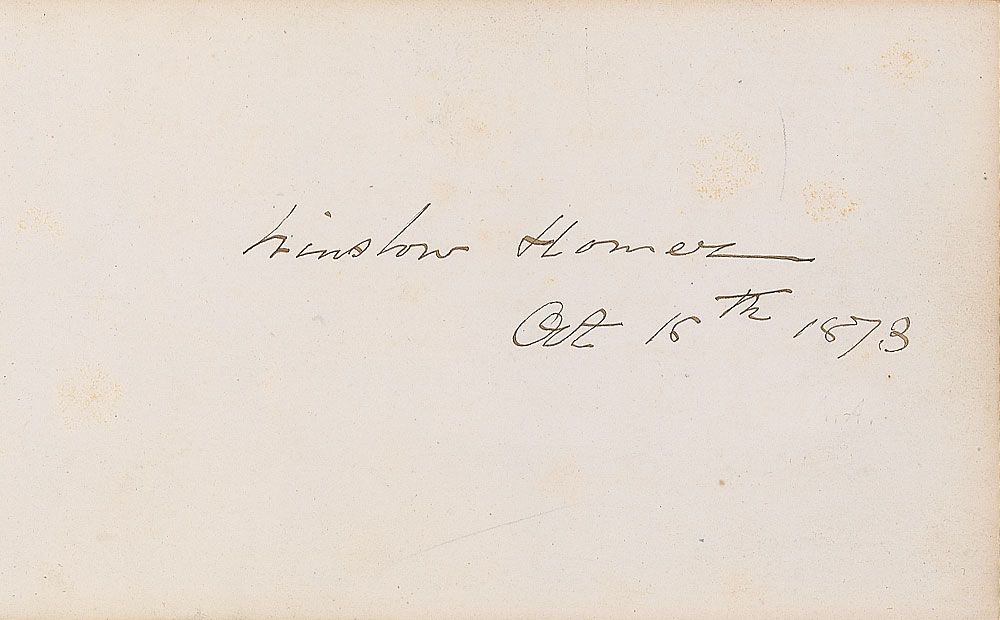 Winslow Homer
Oct 18th 1873